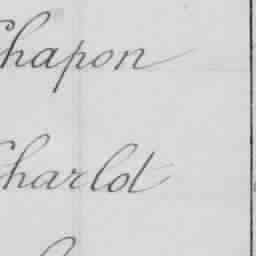 Chapon
Charlot